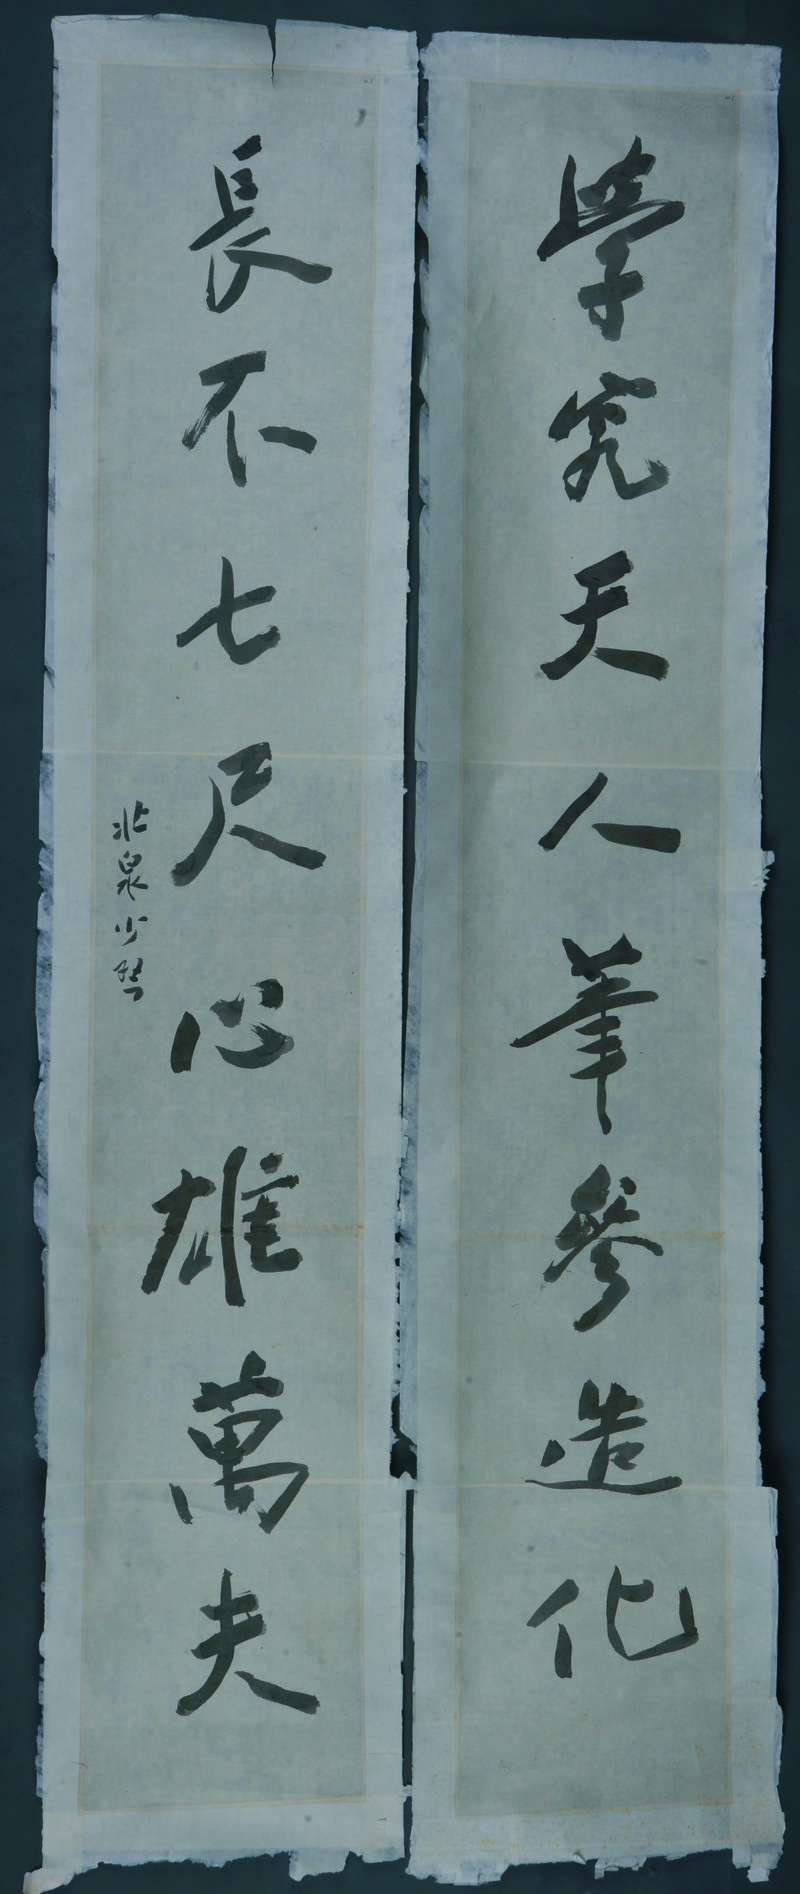 學究天人筆參造化
長不七尺心雄萬夫
北泉少琴